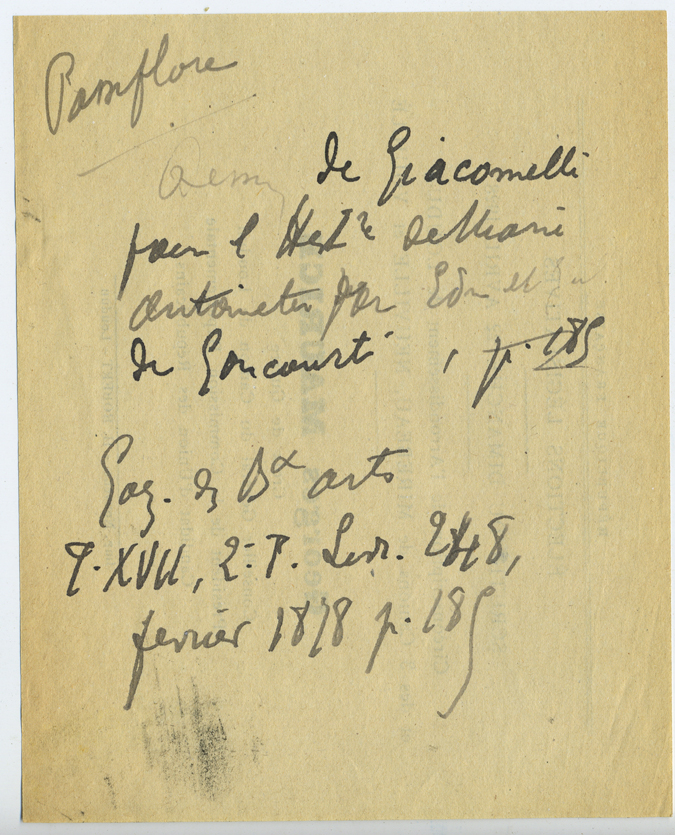 Pamflore
Dessin de Giacomelli
pour l'Histre de Marie
Antoinette par Edm et J
de Goncourt , p. 185
Gaz. des Bx arts
T. XVII, 2e P. Livr. 248,
fevrier 1878 p. 185